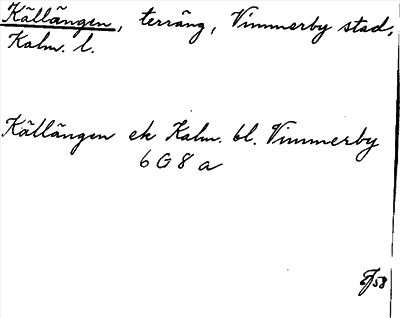 Källängen, terräng, Vimmerby stad,
Kalm. l.
Källängen ek Kalm. bl. Vimmerby
6 G 8 a